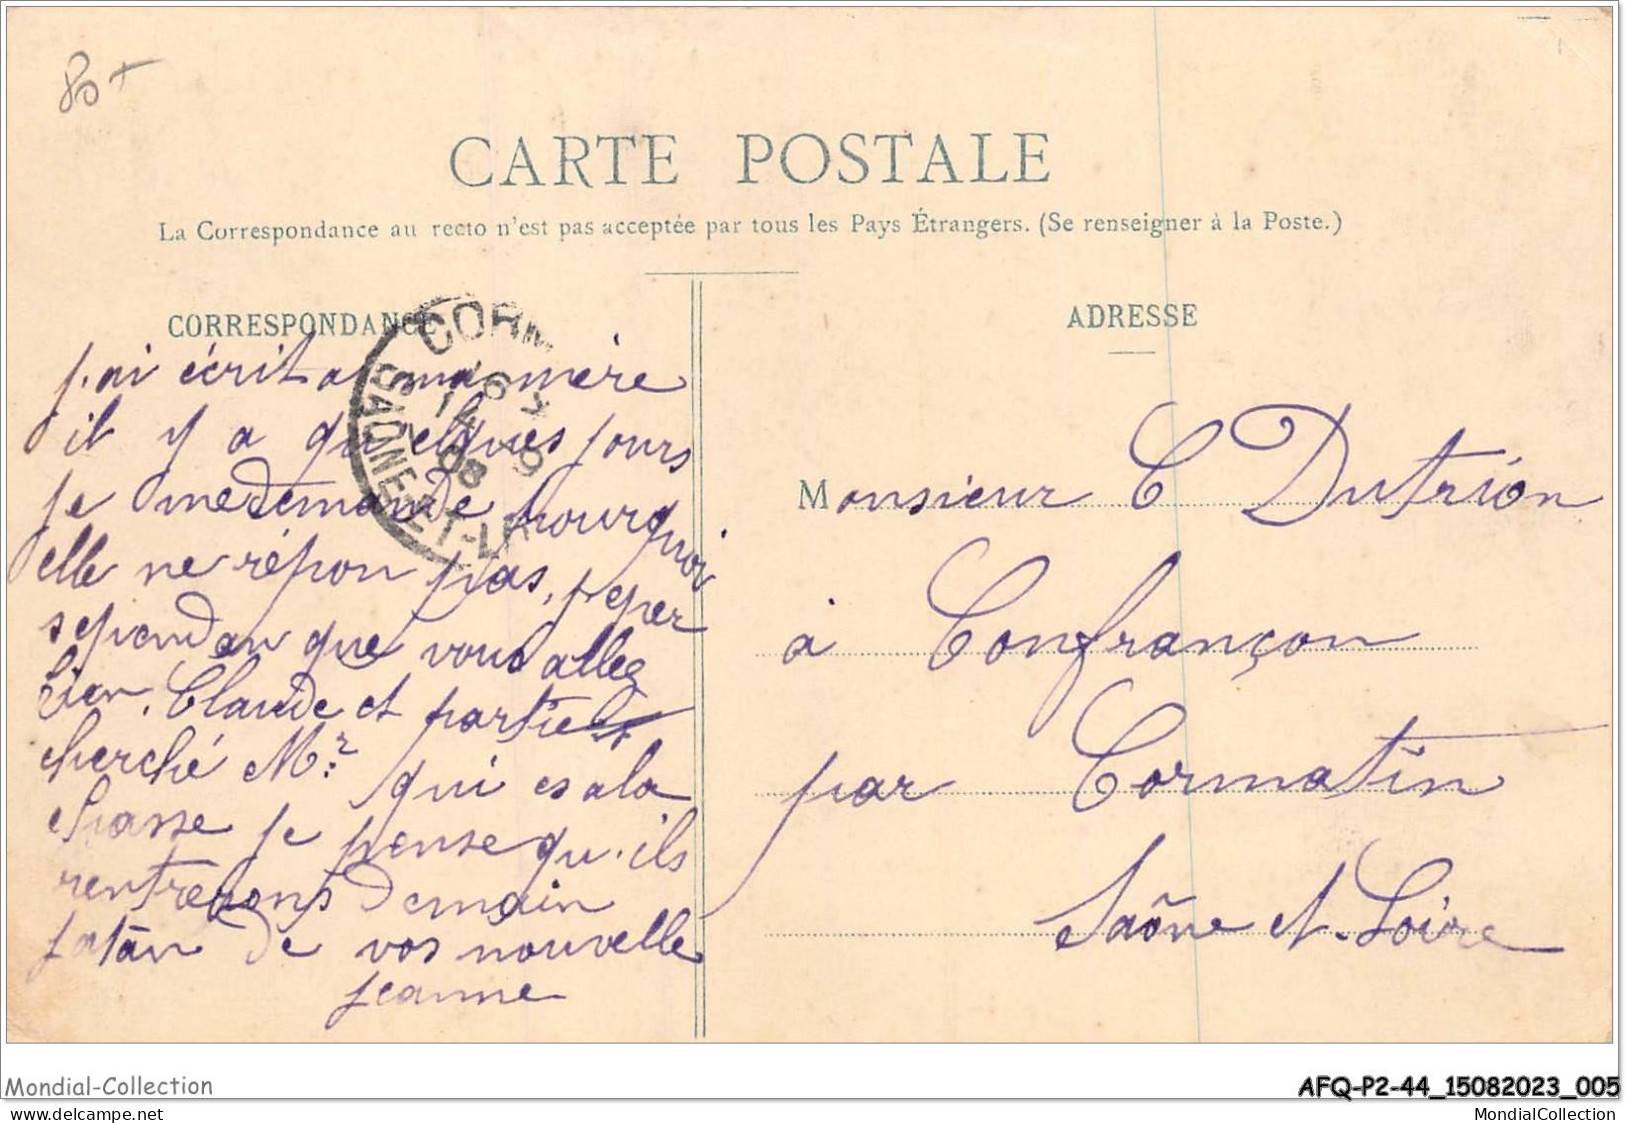 80+
CARTE POSTALE
La Correspondance au recto n'est pas acceptée par tous les Pays Étrangers. (Se renseigner à la Poste.)
CORRESPONDANCE
j.ai écrit a ma mère
il y a quelques jours
je me demande pourquoi
elle ne répon pas,
sependan que vous allez
bien. Claude et partie
cherché Mr. qui es a la
chasse je pense qu.ils
rentrerons demain
jatan de vos nouvelle
jeanne
CORM
SAÔNE-ET-L
14
08
ADRESSE
Monsieur C Dutrion
à Confrançon
par Cormatin
Saône et. Loire
Mondial-Collection
AFQ-P2-44_15082023_005
www.delcampe.net
MondialCollection